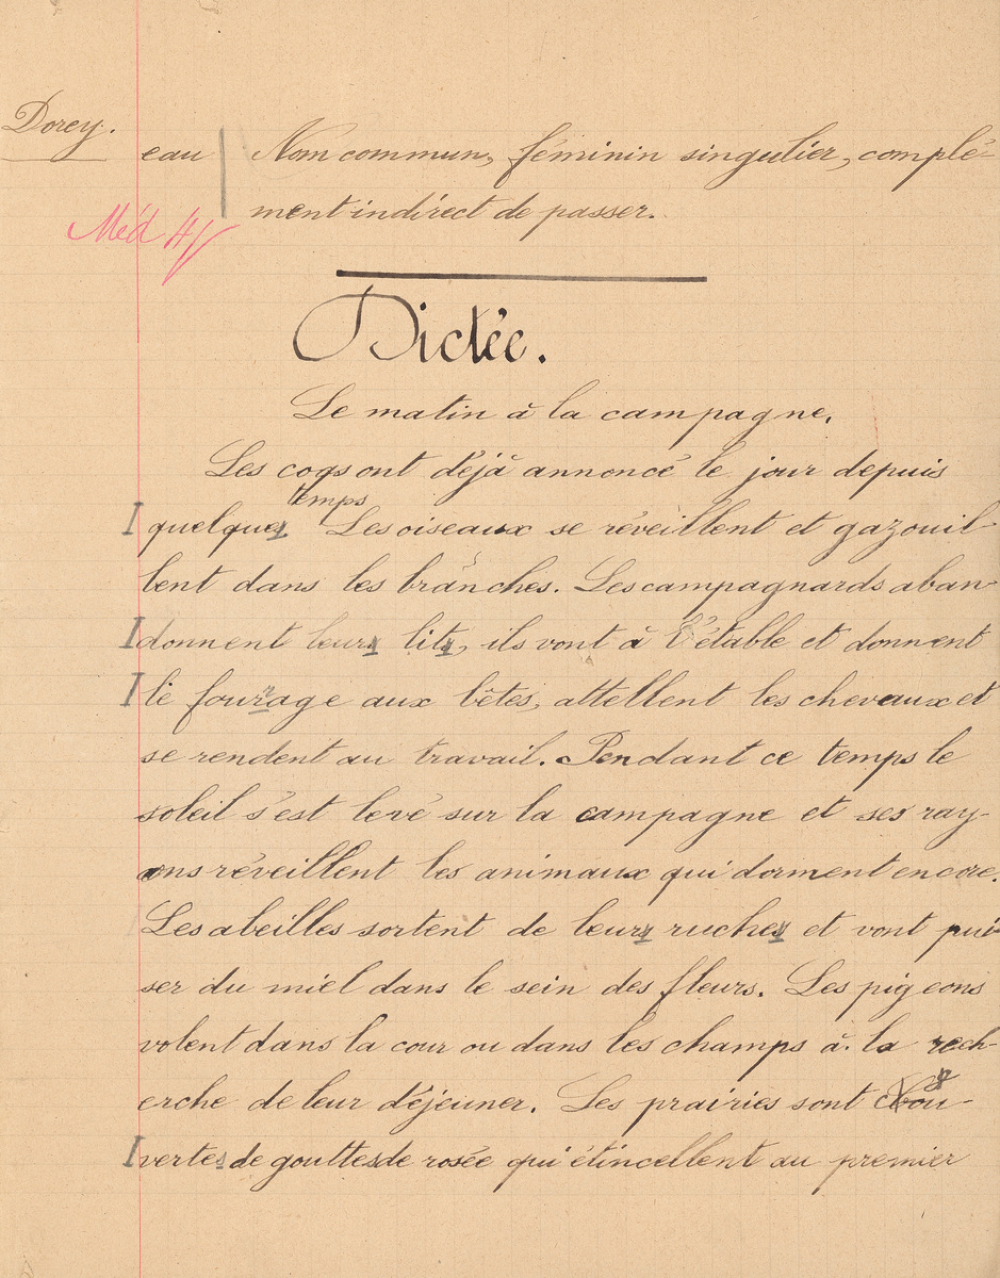 Dorey.
eau Nom commun, féminin singulier, complé-
ment indirect de passer.
Dictée.
Le matin à la campagne.
Les coqs ont déjà annoncé le jour depuis
temps
I quelques Les oiseaux se réveillent et gazouil-
lent dans les branches. Les campagnards aban-
I donnent leurs lits, ils vont à l'étable et donnent
I le fourage aux bêtes, attellent les chevaux et
se rendent au travail. Pendant ce temps le
soleil s'est levé sur la campagne et ses ray-
ons réveillent les animaux qui dorment encore.
Les abeilles sortent de leurs ruches et vont pui-
ser du miel dans le sein des fleurs. Les pigeons
volent dans la cour ou dans les champs à la rech-
erche de leur déjeuner. Les prairies sont cou-
I vertes de gouttes de rosée qui étincellent au premier